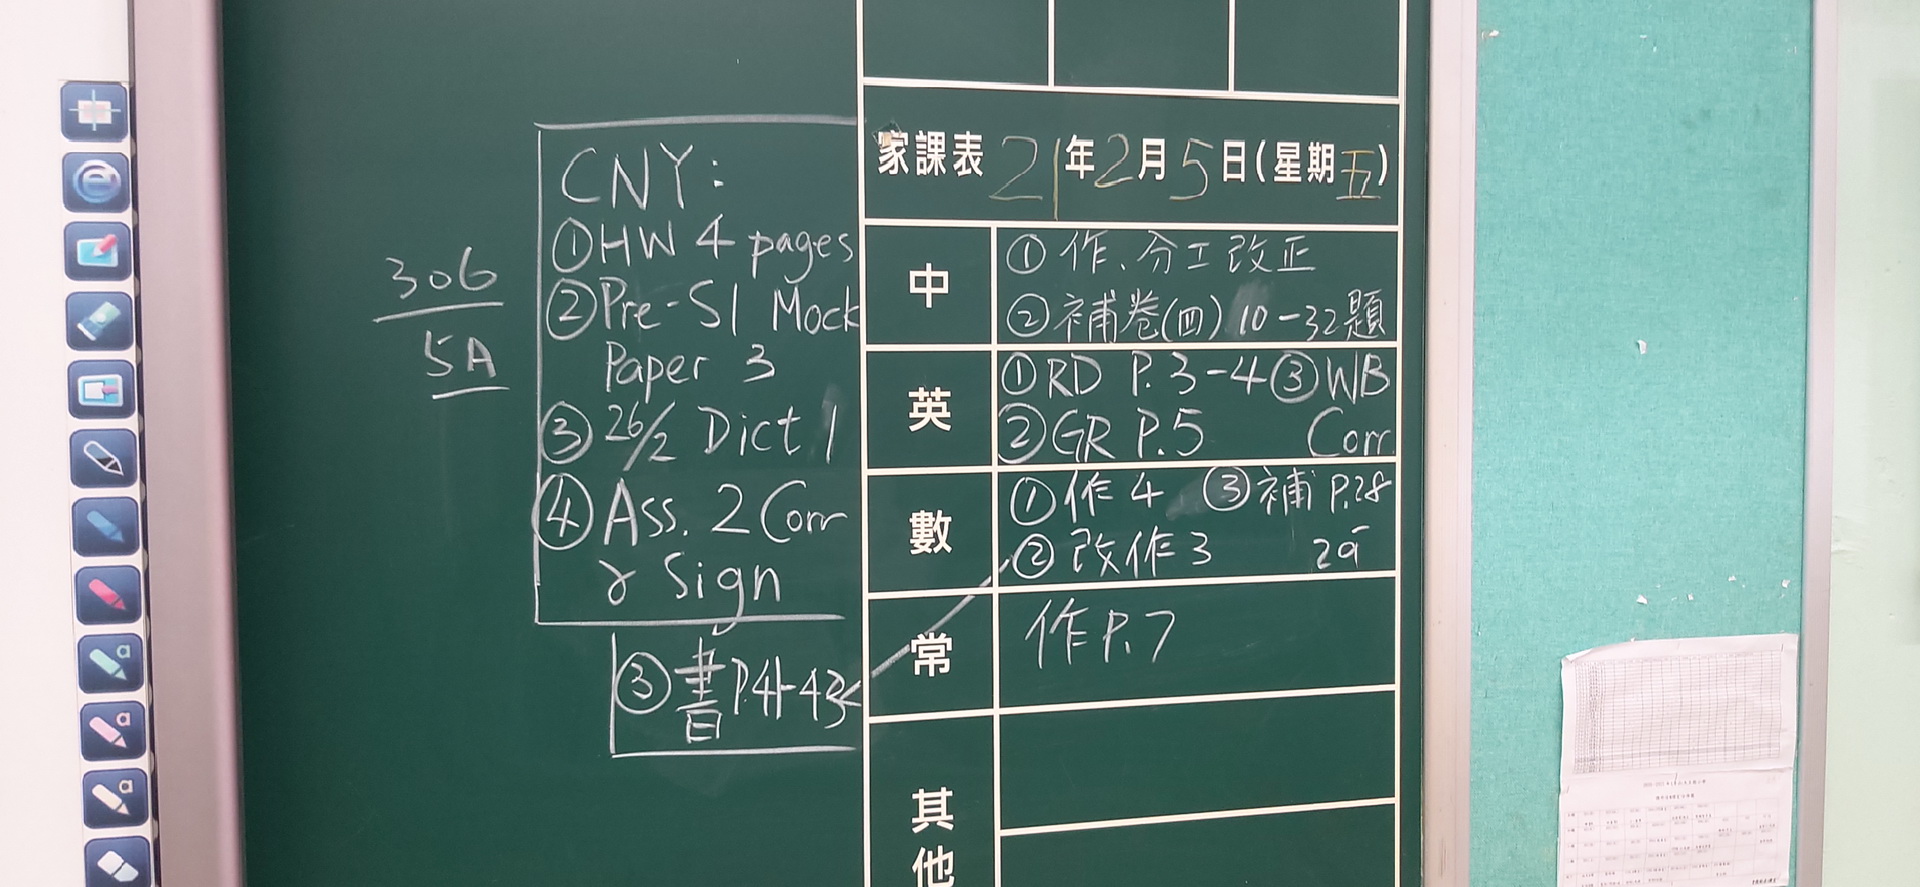 306
5A
CNY:
①HW 4 pages
②Pre-S1 Mock
Paper 3
③26/2 Dict 1
④Ass. 2 Corr
& Sign
③書P.41-43
家課表 21年2月5日(星期五)
中
①作、分工改正
②補卷(四) 10-32題
英
①RD P.3-4 ③WB
②GR P.5 Corr
數
①作4 ③補P.28
②改作3 29
常
作P.7
其他